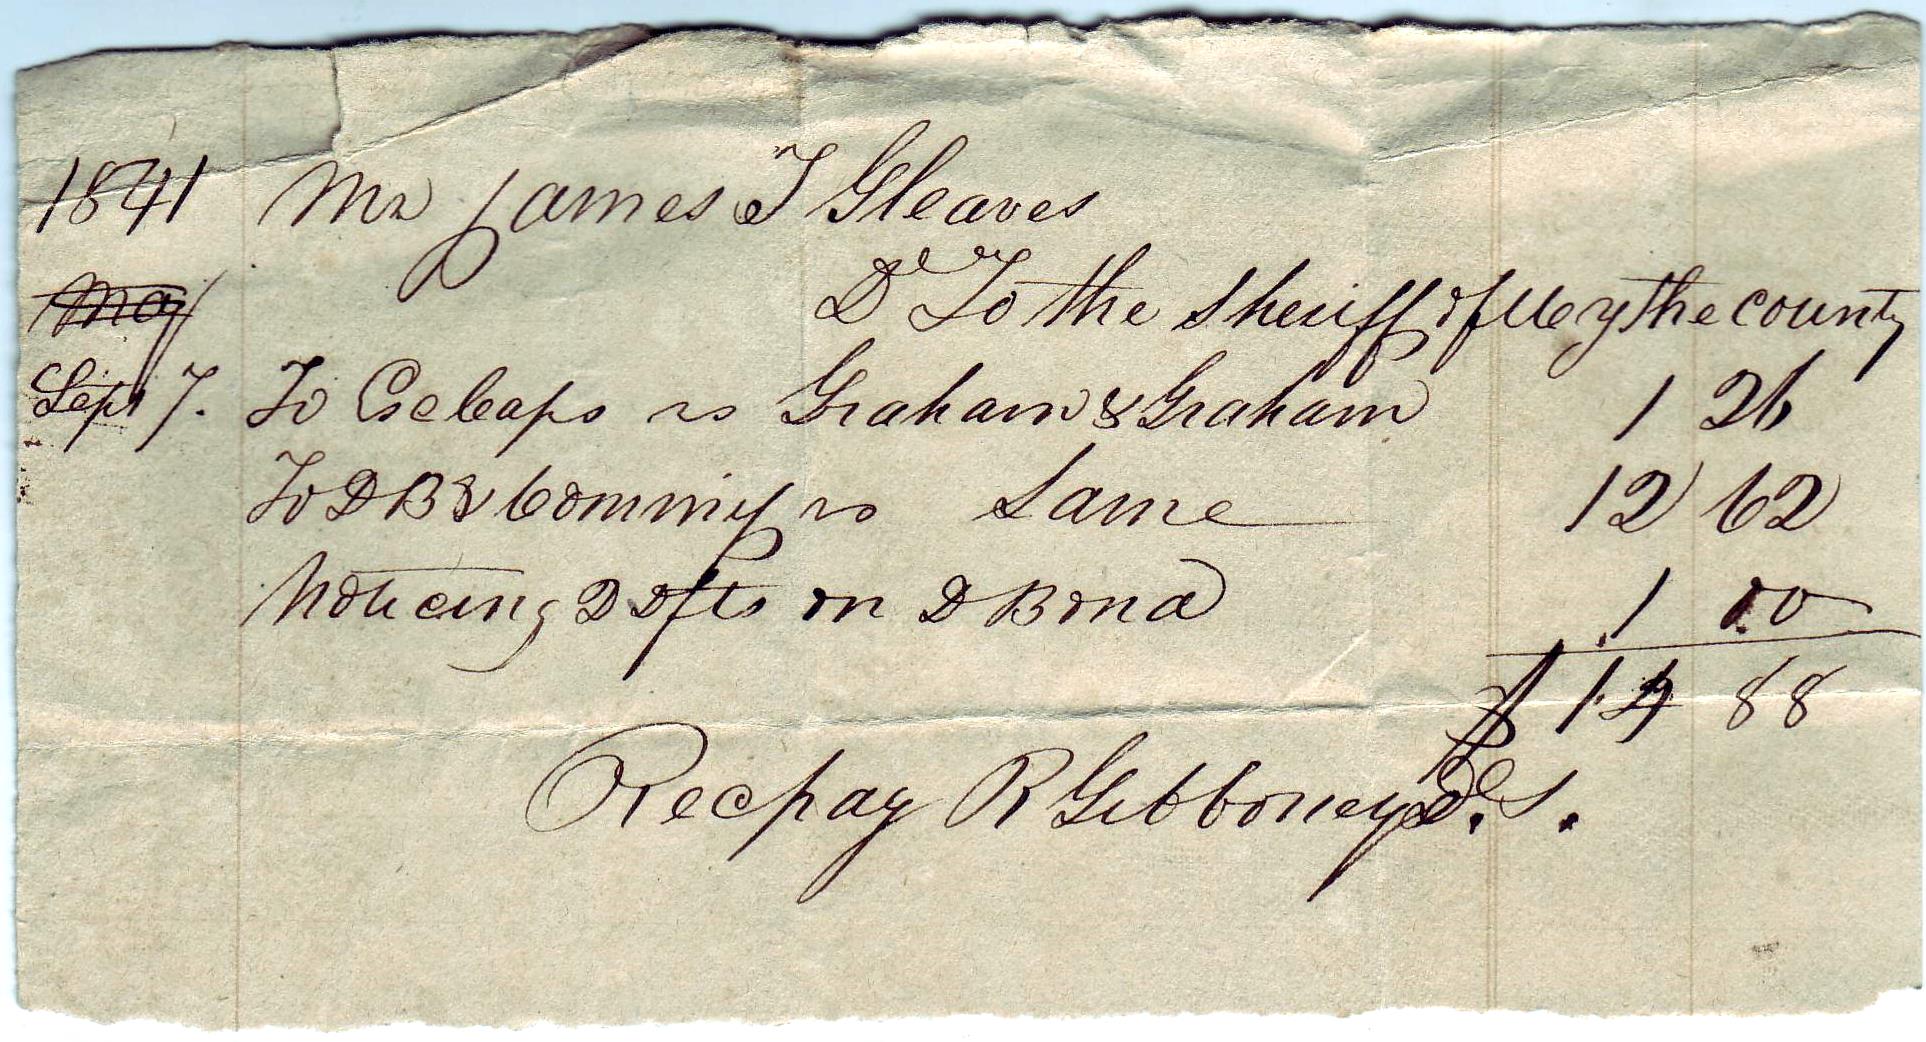 1841 Mr James T Gleaves
May
Dr To the Sheriff of Wythe County
Sept 7. To Cse Caps vs Graham & Graham 1 26
To D B & Commis vs Same 12 62
Noticing 2 Dfts on D Bond 1 00
$ 14 88
Rec pay R Gibboney D. S.